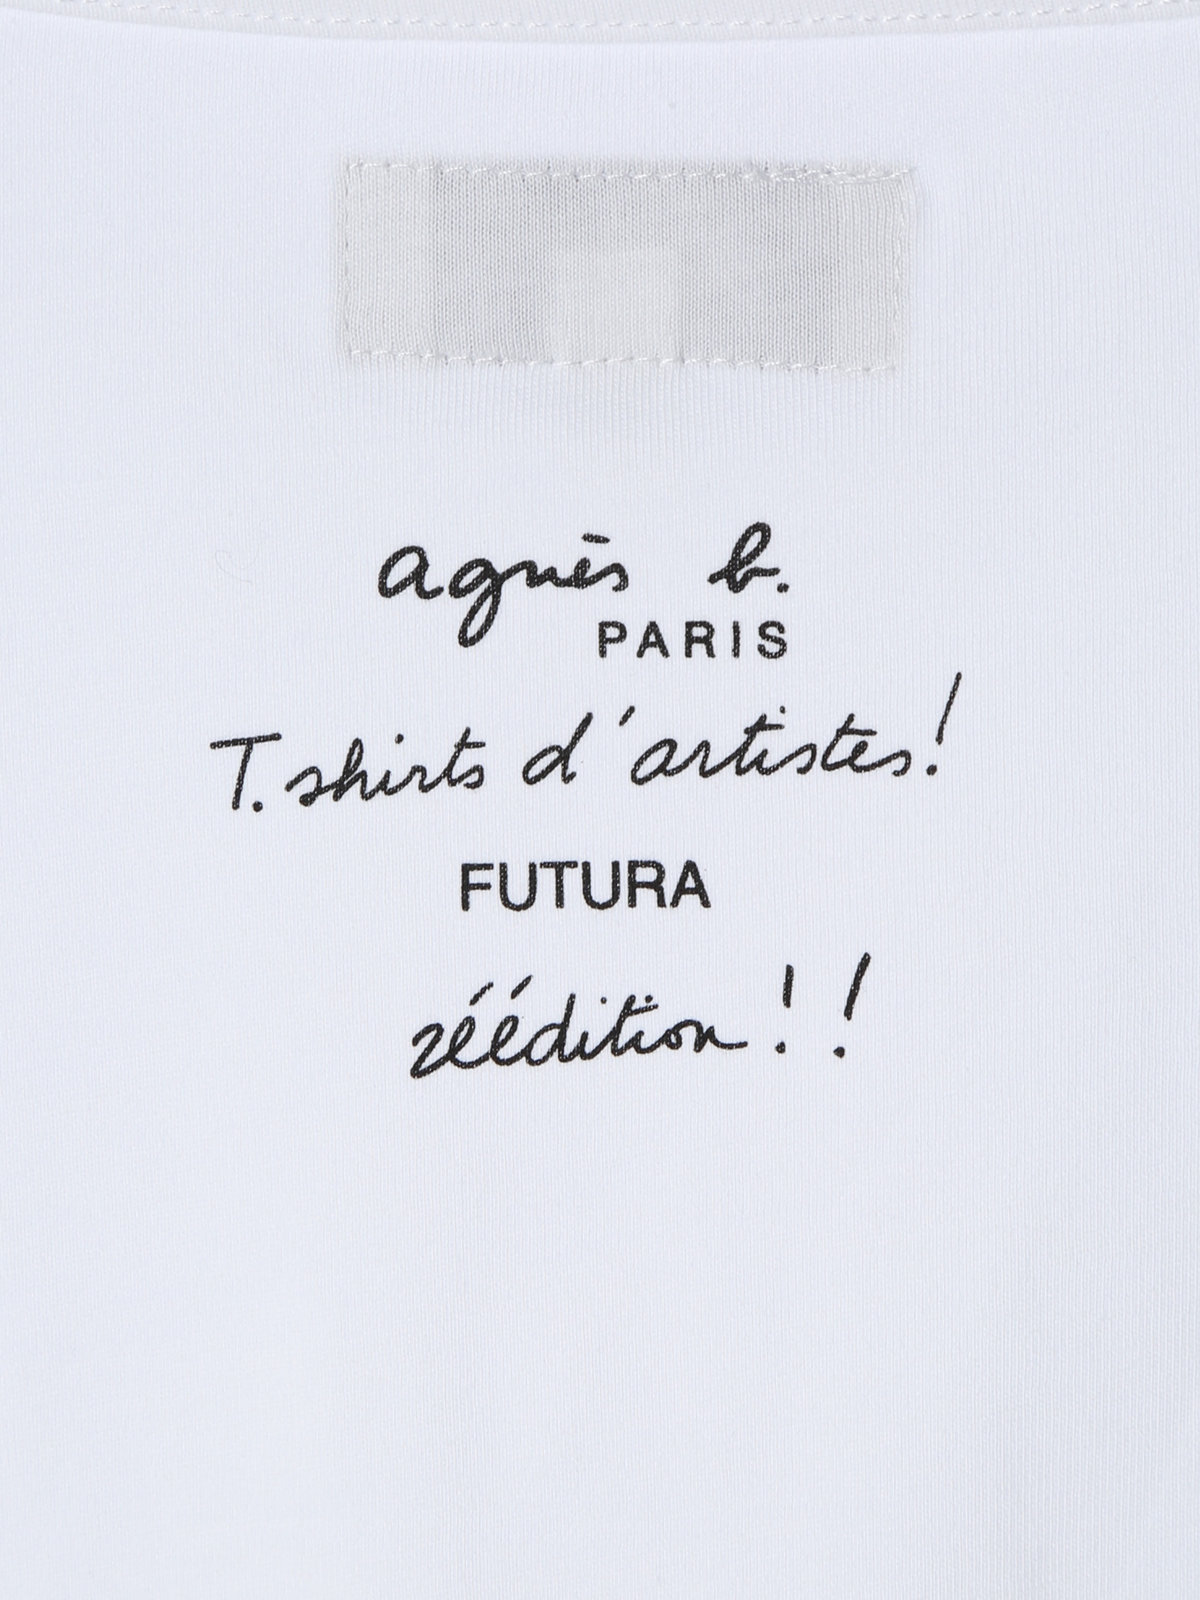 agnès b.
PARIS
T.shirts d'artistes!
FUTURA
réédition!!